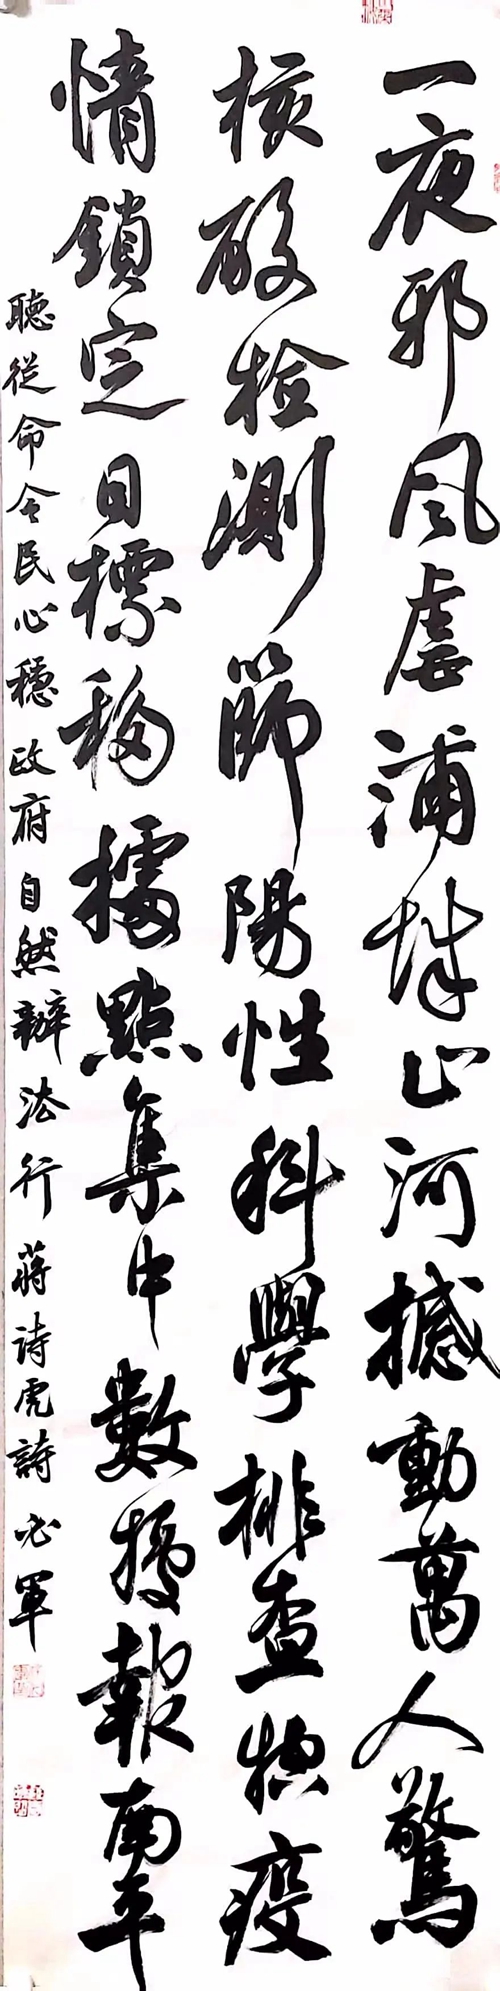 一夜邪风虐浦城山河撼動萬人驚
核酸检測篩陽性科學排查控疫
情鎖定目標移據點集中數據報南平
聽從命令民心穩政府自然辦法行蔣诗虎詩必軍